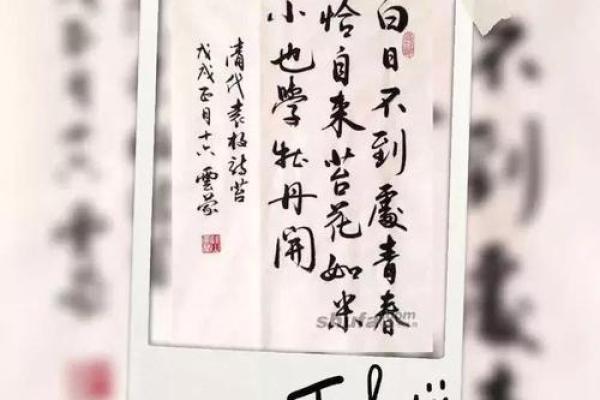 白日不到處青春
恰自来苔花如米
小也學牡丹開
清代袁枚詩苔
戊戌正月十六 雲蒙
shufa.com